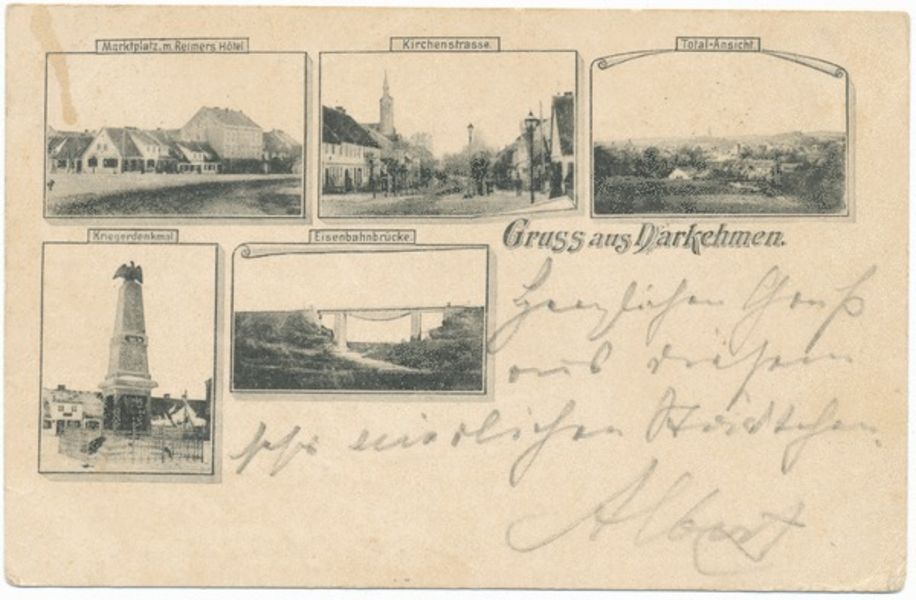 Marktplatz. m. Reimers Hôtel
Kirchenstrasse.
Total-Ansicht.
Kriegerdenkmal
Eisenbahnbrücke.
Gruss aus Darkehmen.
Herzlichen Gruß
aus diesem
sehr niedlichen Städtchen.
Albert